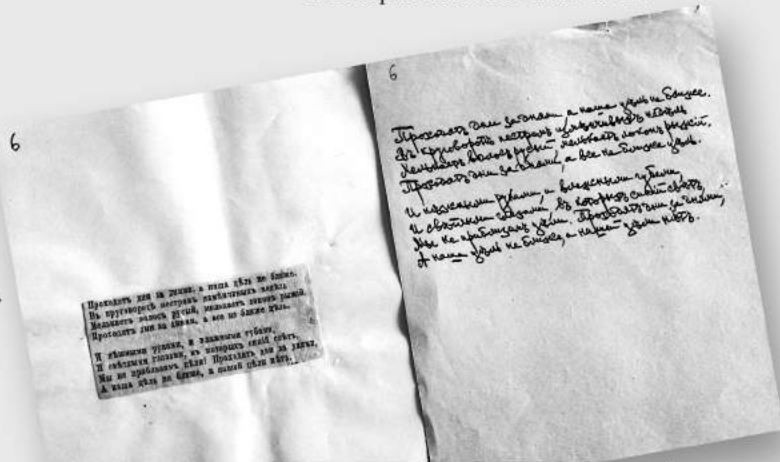 6
Проходятъ дни за днями, а наша цѣль не ближе.
Въ круговоротѣ пестромъ измѣнчивыхъ недѣль
Мелькаетъ волосъ русый, мелькаетъ локонъ рыжій.
Проходятъ дни за днями, а все не ближе цѣль.
И нѣжными руками, и влажными губами,
И свѣтлыми глазами, въ которыхъ синій свѣтъ,
Мы не приблизимъ цѣли! Проходятъ дни за днями,
А наша цѣль не ближе, и нашей цѣли нѣтъ.
6
Проходятъ дни за днями, а наша цѣль не ближе.
Въ круговоротѣ пестромъ измѣнчивыхъ недѣль
Мелькаетъ волосъ русый, мелькаетъ локонъ рыжій.
Проходятъ дни за днями, а все не ближе цѣль.
И нѣжными руками, и влажными губами,
И свѣтлыми глазами, въ которыхъ синій свѣтъ,
Мы не приблизимъ цѣли. Проходятъ дни за днями,
А наша цѣль не ближе, а нашей цѣли нѣтъ.